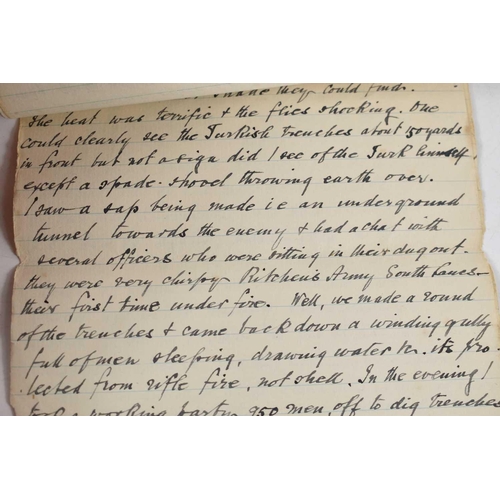 shade they could find.
The heat was terrific & the flies shocking. One
could clearly see the Turkish trenches about 150 yards
in front but not a sign did I see of the Turk himself,
except a spade-shovel throwing earth over.
I saw a sap being made i.e an underground
tunnel towards the enemy & had a chat with
several officers who were sitting in their dug out.
they were very chirpy Kitchen's Army South Lancs-
their first time under fire. Well, we made a round
of the trenches & came back down a winding gully
full of men sleeping, drawing water &c. its pro-
tected from rifle fire, not shell. In the evening I
took a working party 250 men, off to dig trenches